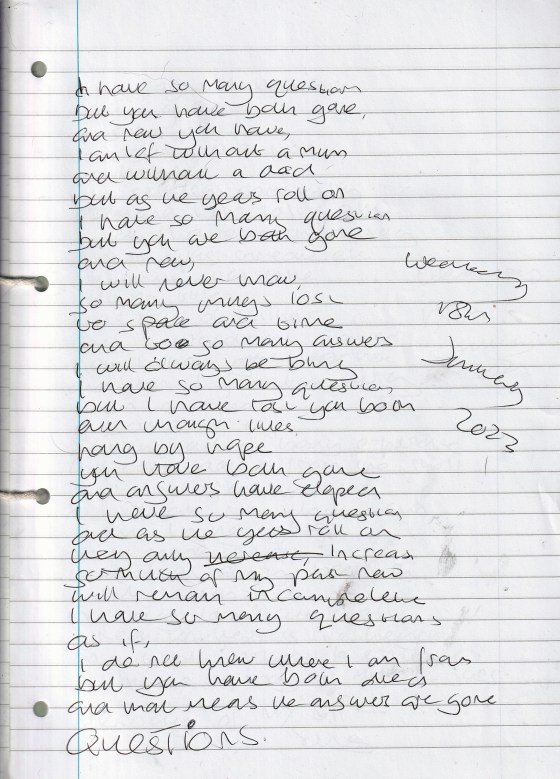 I have so many question
but you have both gone,
and now you have,
I am left without a mum
and without a dad
but as the years roll on
I have so many question
but you are both gone
and now,
I will never know,
so many things lost
to space and time
and too so many answers
I will always be
I have so many question,
but I have lost you both
even though lives
hang by hope
you have both gone
and answers have elapsed
I have so many question
and as the years roll on
they only increase, increase
so much of my past now
will remain incomplete
I have so many questions
as if,
I do not know where I am from
but you have both died
and that means the answer are gone
QUESTIONS.
Wednesday
18th
January
2023